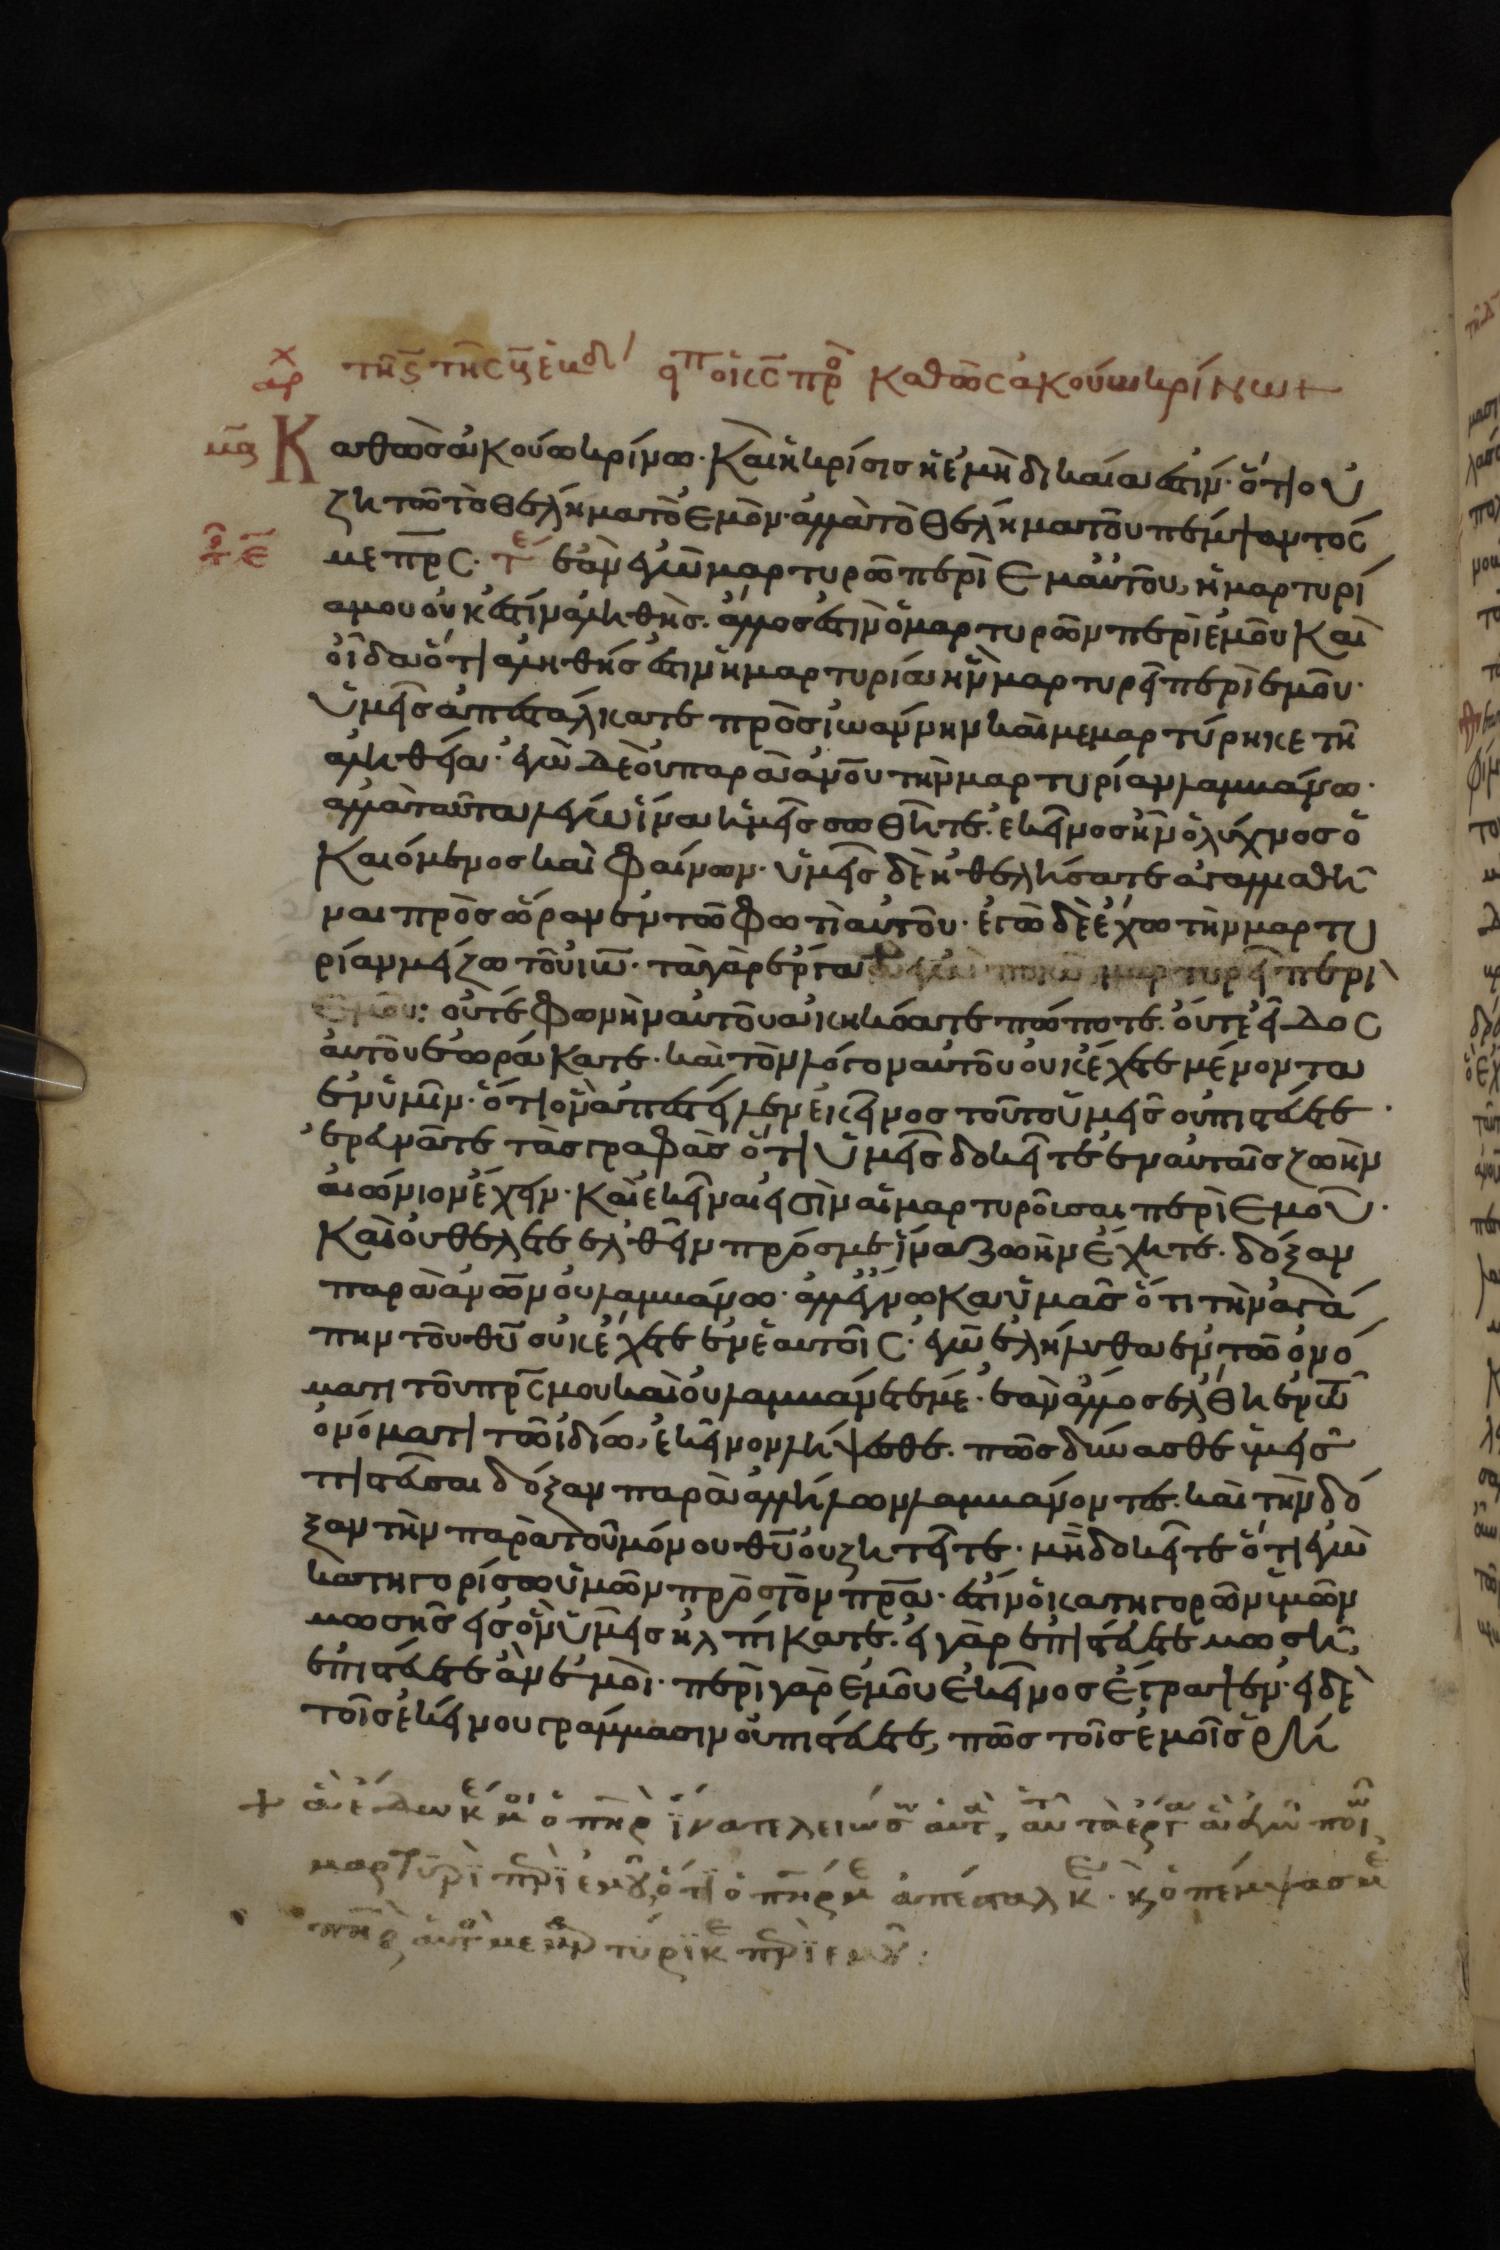 ἀρχ τῆ ϛ τῆς γ ἑβδ εἶπεν ὁ κς πρὸ καθὼς ἀκούω κρίνω +
Καθὼς ἀκούω κρίνω· καὶ ἡ κρίσις ἡ ἐμὴ δικαία ἐστίν· ὅτι οὐ
ζητῶ τὸ θέλημα τὸ ἐμὸν· ἀλλὰ τὸ θέλημα τοῦ πέμψαντός
με πρς. τέ ἐὰν ἐγὼ μαρτυρῶ περὶ ἐμαυτοῦ, ἡ μαρτυρί
α μου οὐκ ἔστιν ἀληθής. ἄλλος ἐστὶν ὁ μαρτυρῶν περὶ ἐμοῦ καὶ
οἶδα ὅτι ἀληθής ἐστιν ἡ μαρτυρία ἣν μαρτυρεῖ περὶ ἐμοῦ·
ὑμεῖς ἀπεστάλκατε πρὸς ἰωάννην καὶ μεμαρτύρηκε τῆ
ἀληθεία· ἐγὼ δὲ οὐ παρὰ ἀνου τὴν μαρτυρίαν λαμβάνω·
ἀλλὰ ταῦτα λέγω ἵνα ὑμεῖς σωθῆτε. ἐκεῖνος ἦν ὁ λύχνος ὁ
καιόμενος καὶ φαίνων· ὑμεῖς δὲ ἠθελήσατε ἀγαλλιαθῆ
ναι πρὸς ὥραν ἐν τῶ φωτὶ αὐτοῦ· ἐγὼ δὲ ἔχω τὴν μαρτυ
ρίαν μείζω τοῦ ιω· τὰ γὰρ ἔργα ἃ ἐγὼ ποιῶ μαρτυρεῖ περὶ
ἐμοῦ: οὔτε φωνὴν αὐτοῦ ἀκηκόατε πώποτε. οὔτε εἶδος
αὐτοῦ ἑωράκατε· καὶ τὸν λόγον αὐτοῦ οὐκ ἔχετε μένοντα
ἐν ὑμῖν· ὅτι ὃν ἀπέστειλεν ἐκεῖνος τοῦτο ὑμεῖς οὐ πιστεύετε·
ἐρευνᾶτε τὰς γραφὰς ὅτι ὑμεῖς δοκεῖτε ἐν αὐταῖς ζωὴν
αἰώνιον ἔχειν· καὶ ἐκεῖναι εἰσὶν αἱ μαρτυροῦσαι περὶ ἐμοῦ·
καὶ οὐ θέλετε ἐλθεῖν πρός με ἵνα ζωὴν ἔχητε. δόξαν
παρὰ ἀνων οὐ λαμβάνω· ἀλλ' ἔγνωκα ὑμᾶς ὅτι τὴν ἀγά
πην τοῦ θυ οὐκ ἔχετε ἐν ἑαυτοῖς· ἐγὼ ἐλήλυθα ἐν τῶ ὀνό
ματι τοῦ πρς μου καὶ οὐ λαμβάνετέ με· ἐὰν ἄλλος ἔλθη ἐν τῶ
ὀνόματι τῶ ἰδίω, ἐκεῖνον λήψεσθε. πῶς δύνασθε ὑμεῖς
πιστεῦσαι δόξαν παρὰ ἀλλήλων λαμβάνοντες. καὶ τὴν δό
ξαν τὴν παρὰ τοῦ μόνου θυ οὐ ζητεῖτε· μὴ δοκεῖτε ὅτι ἐγὼ
κατηγορίσω ὑμῶν πρὸς τὸν πρα· ἔστιν ὁ κατηγορῶν ὑμῶν
μωσῆς εἰς ὃν ὑμεῖς ἠλπίκατε. εἰ γὰρ ἐπιστεύετε μωσῆ,
ἐπιστεύετε ἂν ἐμοὶ· περὶ γὰρ ἐμοῦ ἐκεῖνος ἔγραψεν· εἰ δὲ
τοῖς ἐκείνου γράμμασιν οὐ πιστεύετε, πῶς τοῖς ἐμοῖς ῥή
+ ἃ ἔδωκέ μοι ὁ πηρ ἵνα τελειώσω αὐτὰ, αὐτὰ τὰ ἔργα ἃ ἐγὼ ποιῶ
μαρτυρὶ περὶ ἐμοῦ, ὅτι ὁ πηρ με ἀπέσταλκε. κ ὁ πέμψας με
πηρ αὐτὸς μεμαρτύρικε περὶ ἐμοῦ: